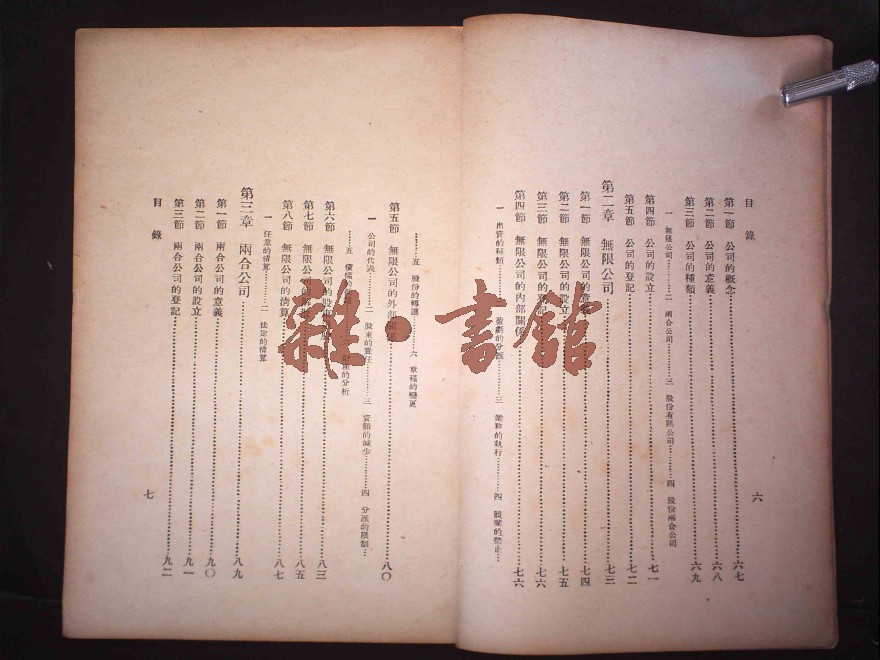 目錄
第一節 公司的概念……六七
第二節 公司的意義……六八
第三節 公司的種類……六九
一 無限公司……二 兩合公司……三 股份有限公司……四 股份兩合公司
第四節 公司的設立……七一
第五節 公司的登記……七二
第二章 無限公司……七三
第一節 無限公司的意義……七四
第二節 無限公司的設立……七五
第三節 無限公司的登記……七六
第四節 無限公司的內部關係……七六
一 出資的種類……盈虧的分派……三 業務的執行……四 競業的禁止…
六
……五 股份的轉讓……六 章程的變更
第五節 無限公司的外部關係……八〇
一 公司的代表……二 股東的責任……三 資額的減少……四 分派的限制…
……五 債權的 財產的分析
第六節 無限公司的股東……八三
第七節 無限公司的……八五
第八節 無限公司的清算……八七
一 任意的清算……二 法定的清算
第三章 兩合公司……八九
第一節 兩合公司的意義……九〇
第二節 兩合公司的設立……九一
第三節 兩合公司的登記……九二
目錄
七
雜·書館